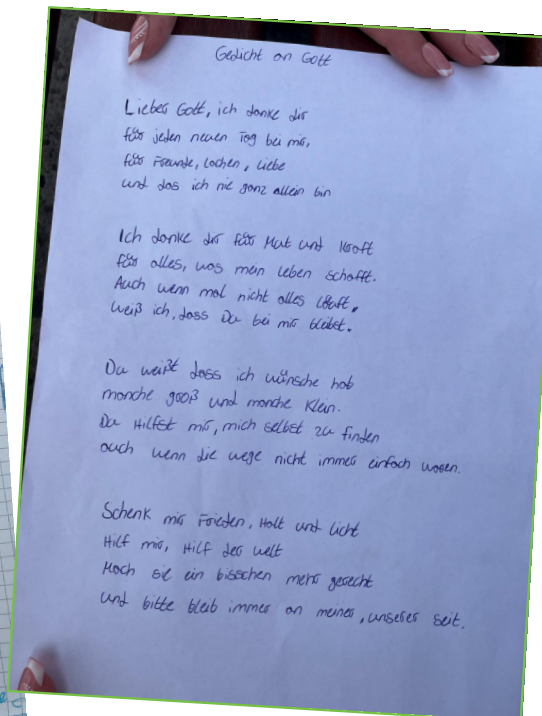 Gedicht an Gott
Lieber Gott, ich danke dir
für jeden neuen Tag bei mir,
für Freunde, Lachen, Liebe
und das ich nie ganz allein bin
Ich danke dir für Mut und Kraft
für alles, was mein Leben schafft.
Auch wenn mal nicht alles läuft,
weiß ich, dass Du bei mir bleibst.
Du weißt dass ich wünsche hab
manche groß und manche klein.
Du Hilfst mir, mich selbst zu finden
auch wenn die wege nicht immer einfach waren.
Schenk mir Frieden, Halt und licht
Hilf mir, Hilf der welt
Mach sie ein bisschen mehr gerecht
und bitte bleib immer an meiner, unserer seit.